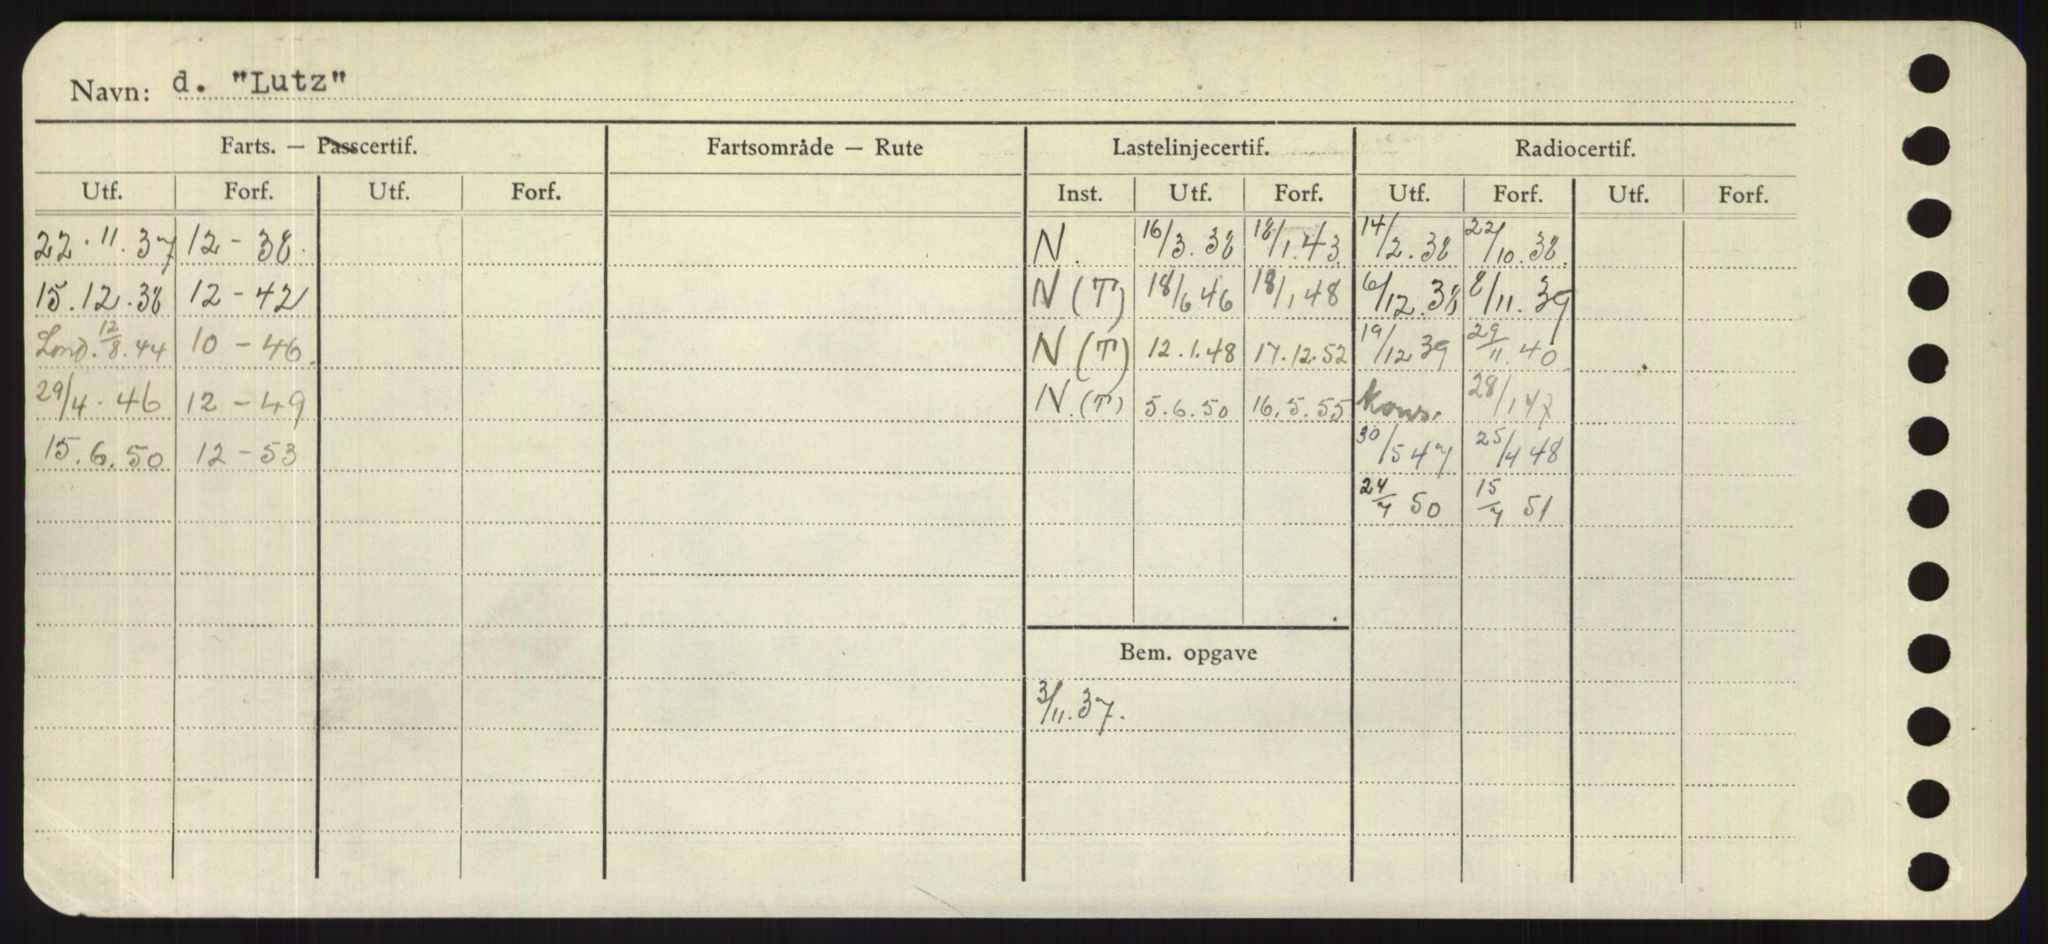 Navn: d. "Lutz"
Farts. — Passcertif. Fartsområde — Rute Lastelinjecertif. Radiocertif.
Utf. Forf. Utf. Forf. Inst. Utf. Forf. Utf. Forf. Utf. Forf.
22.11.37 12-38. N. 16/3.38 18/1.43 14/2.38 22/10.38.
15.12.38 12-42 N(T) 18/6 46 18/1 48 6/12.38 8/11.39
Lond. 12/8.44 10-46. N(T) 12.1.48 17.12.52 19/12 39 29/11.40
29/4.46 12-49 N.(T) 5.6.50 16.5.55 28/1 47
15.6.50 12-53 30/5 47 25/4 48
24/7 50 15/7 51
Bem. opgave
3/11.37.